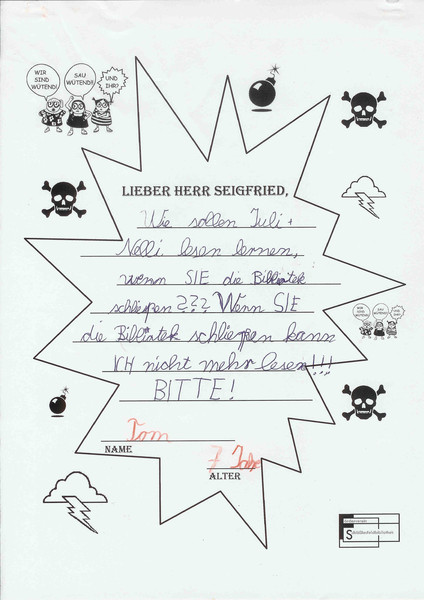 WIR SIND WÜTEND!
SAU WÜTEND!!
UND IHR?
LIEBER HERR SEIGFRIED,
Wie sollen Juli +
Nelli lesen lernen,
wenn SIE die Bibliotek
schliessen ??? Wenn SIE
die Bibliotek schliessen kann
ICH nicht mehr lesen!!!
BITTE!
Tom
NAME
7 Jahre
ALTER